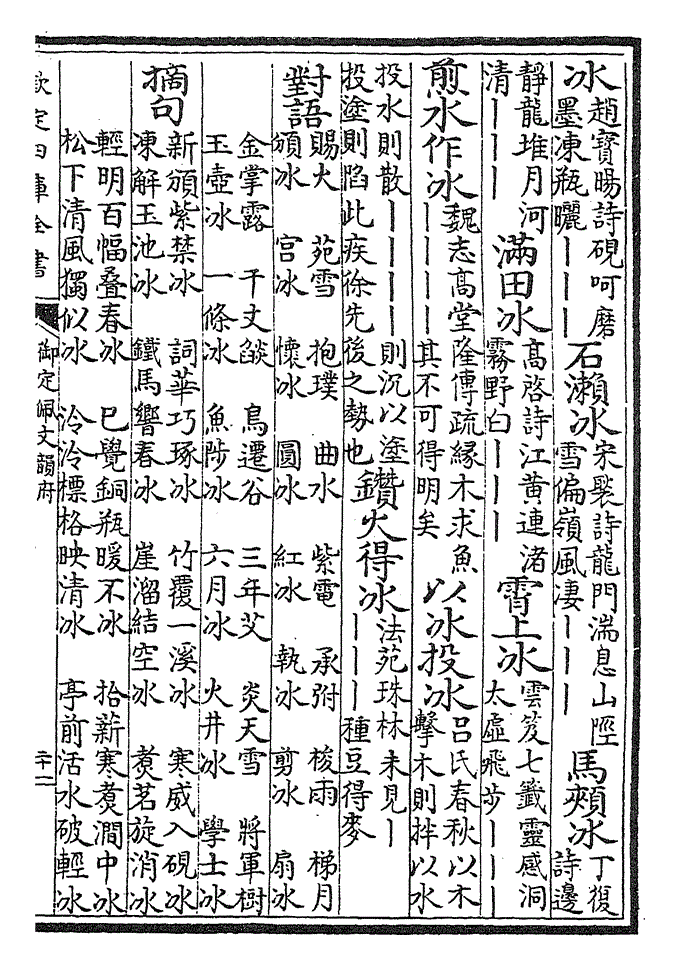 冰趙寶暘詩硯呵磨墨凍瓶曬｜｜｜石瀨冰宋褧詩龍門湍息山陘雪偏嶺風凄｜｜｜馬頰冰丁復詩邊
靜龍堆月河清｜｜｜滿田冰高啓詩江黃連渚霧野白｜｜｜霄上冰雲笈七籤靈感洞太虛飛步｜｜｜
煎水作冰魏志高堂隆傳疏緣木求魚｜｜｜｜其不可得明矣以冰投冰呂氏春秋以木擊木則拌以水
投水則散｜｜｜｜則沉以塗投塗則陷此疾徐先後之勢也鑽火得冰法苑珠林未見｜｜｜｜種豆得麥
對語 賜火頒冰 苑雪宮冰 抱璞懷冰 曲水圓冰 紫電紅冰 承弣執冰 梭雨剪冰 梯月扇冰
金掌露玉壺冰 千丈燄一條冰 鳥遷谷魚陟冰 三年艾六月冰 炎天雪火井冰 將軍樹學士冰
摘句 新頒紫禁冰凍解玉池冰 詞華巧琢冰鐵馬響春冰 竹覆一溪冰崖溜結空冰 寒威入硯冰煑茗旋消冰
輕明百幅叠春冰松下清風獨似冰 已覺銅瓶暖不冰泠泠標格映清冰 拾薪寒煑澗中冰亭前活水破輕冰
欽定四庫全書 御定佩文韻府